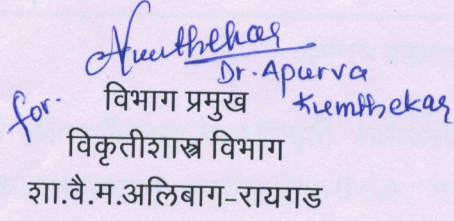 Dr. Apurva
Kumthekar
for.
विभाग प्रमुख
विकृतीशास्त्र विभाग
शा.वै.म.अलिबाग-रायगड